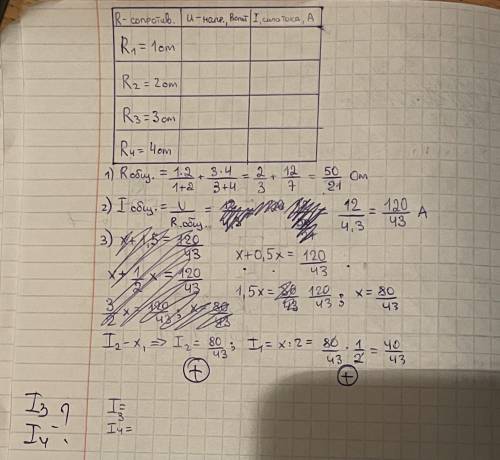 R-сопротив. U-напр., Вольт I, сила тока, А
R₁ = 1 ом
R₂ = 2 ом
R₃ = 3 ом
R₄ = 4 ом
1) Rобщ. = 1·2/1+2 + 3·4/3+4 = 2/3 + 12/7 = 50/21 Ом
2) I общ. = U/R.общ. = 12/4,3 = 120/43 А
3) x+1,5 = 120/43 x+0,5x = 120/43
x+1/2 x = 120/43 1,5x = 120/43; x = 80/43
3/2 x = 120/43; x = 80/43
I₂-x, => I₂ = 80/43; I₁ = x:2 = 80/43 · 1/2 = 40/43
+ +
I₃ ? I₃=
I₄ - : I₄=